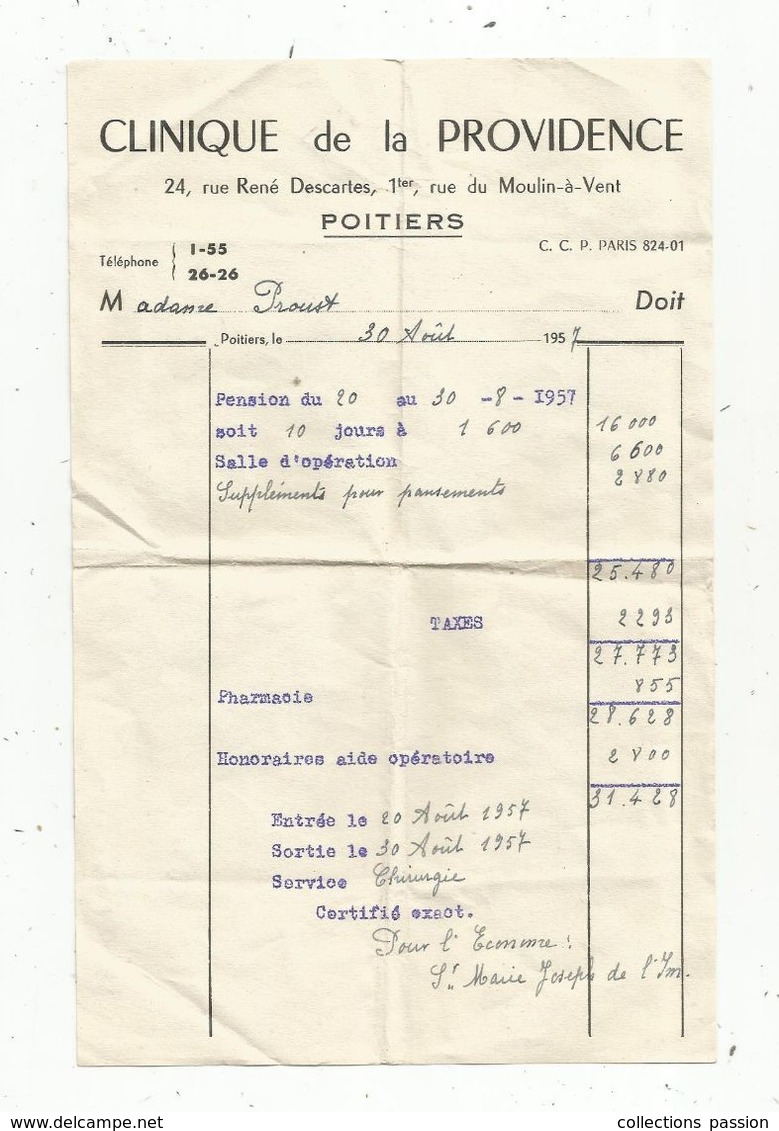 CLINIQUE de la PROVIDENCE
24, rue René Descartes, 1ter, rue du Moulin-à-Vent
POITIERS
Téléphone { 1-55
26-26
C. C. P. PARIS 824-01
Madame Proust Doit
Poitiers, le 30 Août 1957
Pension du 20 au 30 -8- 1957
soit 10 jours à 1 600 16 000
Salle d'opération 6 600
Suppléments pour pansements 2 880
25.480
TAXES 2293
27.773
Pharmacie 855
28.628
Honoraires aide opératoire 2 800
31.428
Entrée le 20 Août 1957
Sortie le 30 Août 1957
Service Chirurgie
Certifié exact.
Pour l'Econome :
Sr Marie Joseph de l'Im.
collections passion